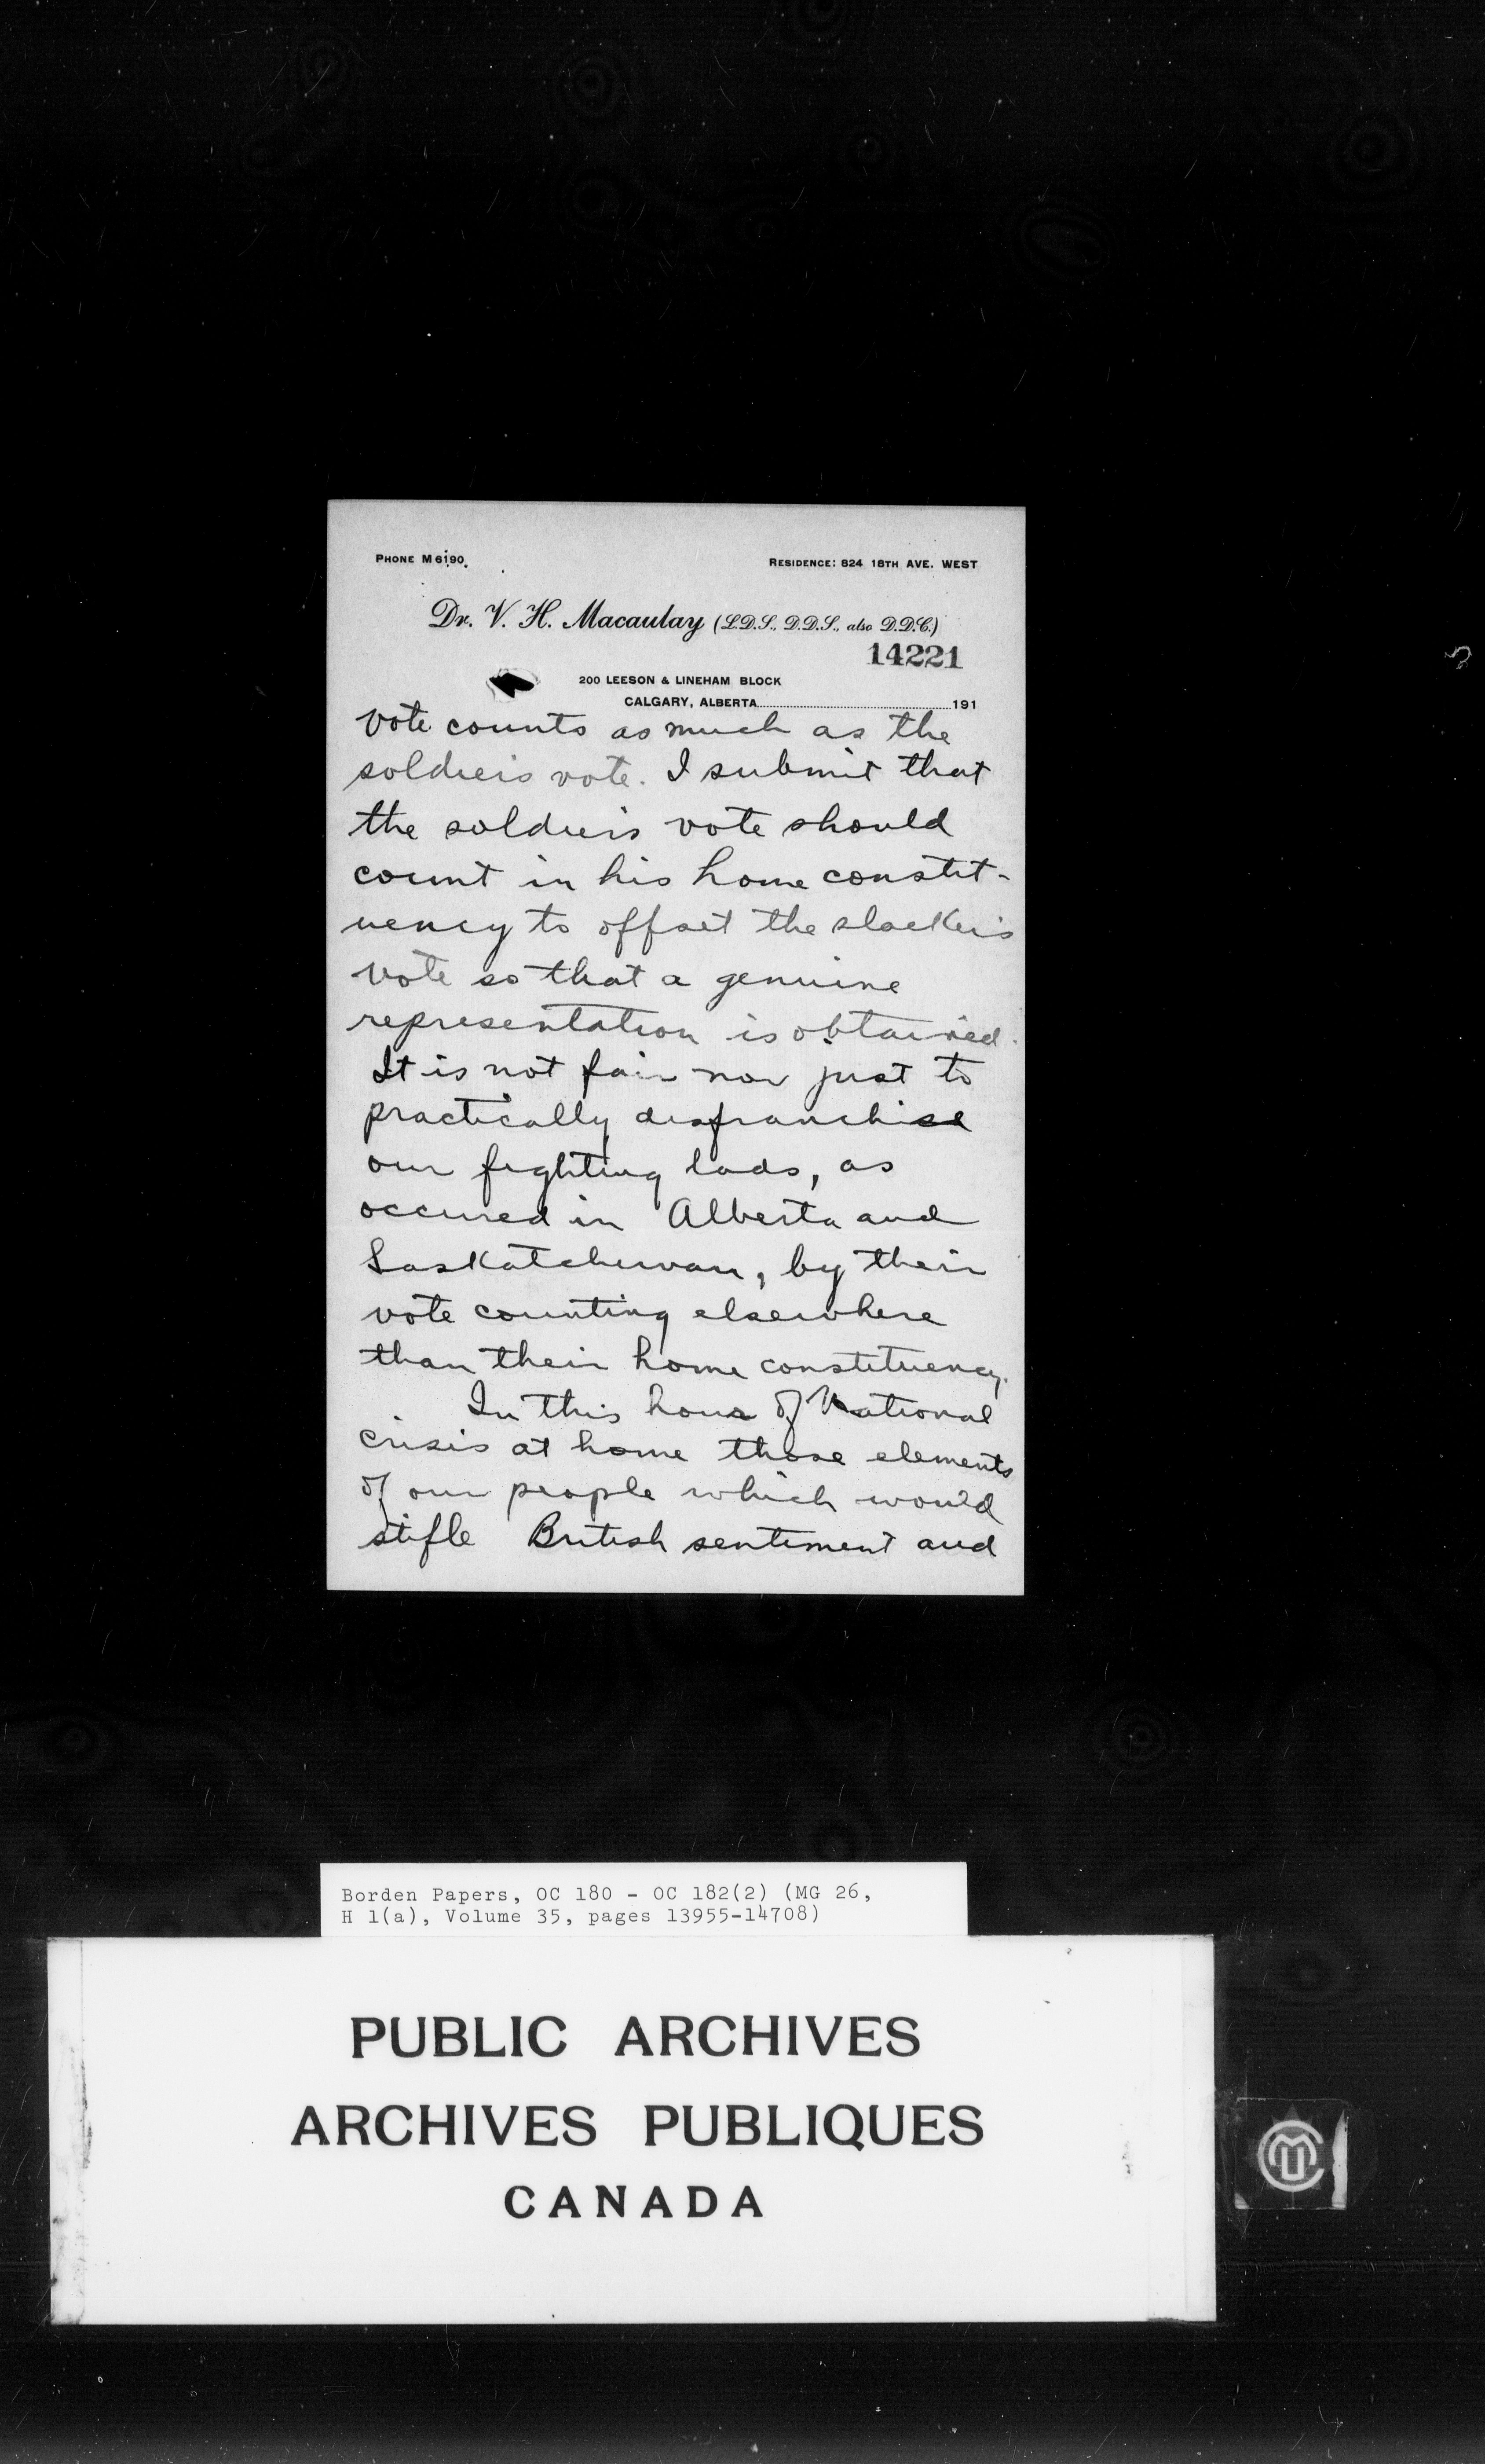 PHONE M 6190.
RESIDENCE: 824 18TH AVE. WEST
Dr. V. H. Macaulay (L.D.S., D.D.S., also D.D.C.)
14221
200 LEESON & LINEHAM BLOCK
CALGARY, ALBERTA 191
vote counts as much as the
soldier's vote. I submit that
the soldier's vote should
count in his home constit-
uency to offset the slacker's
vote so that a genuine
representation is obtained.
It is not fair nor just to
practically disfranchise
our fighting lads, as
occured in Alberta and
Saskatchewan, by their
vote counting elsewhere
than their home constituency.
In this hour of National
crisis at home those elements
of our people which would
stifle British sentiment and
Borden Papers, OC 180 - OC 182(2) (MG 26,
H 1(a), Volume 35, pages 13955-14708)
PUBLIC ARCHIVES
ARCHIVES PUBLIQUES
CANADA